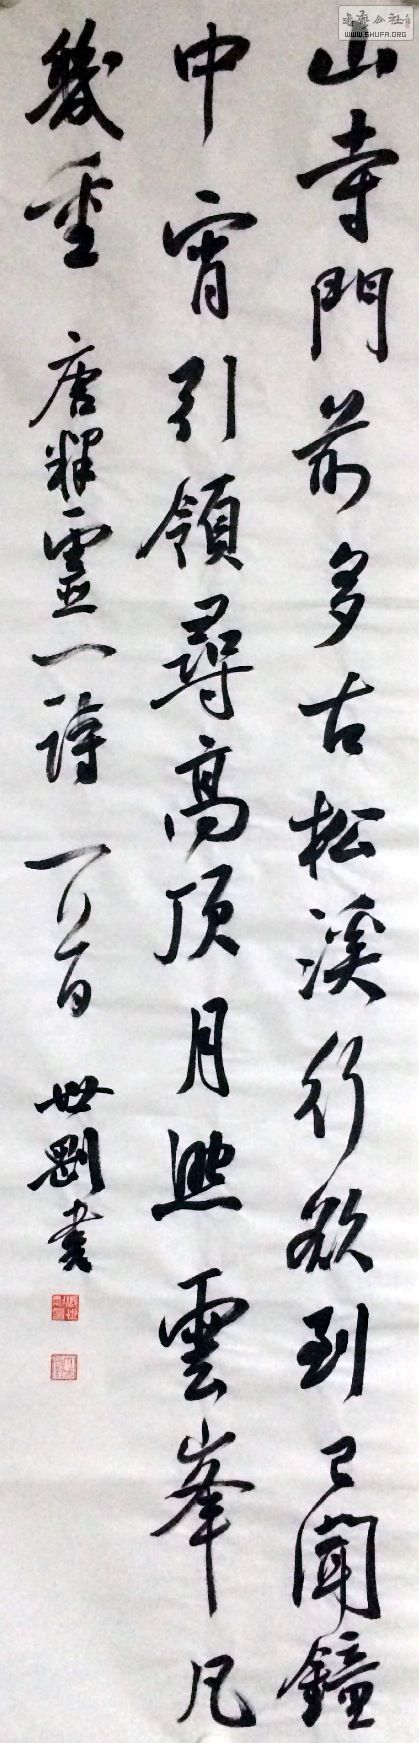 山寺門前多古松溪行欲到已聞鐘
中宵引領尋高頂月照雲峯凡
幾重 唐釋靈一詩一首 世剛書
书法公社
WWW.SHUFA.ORG